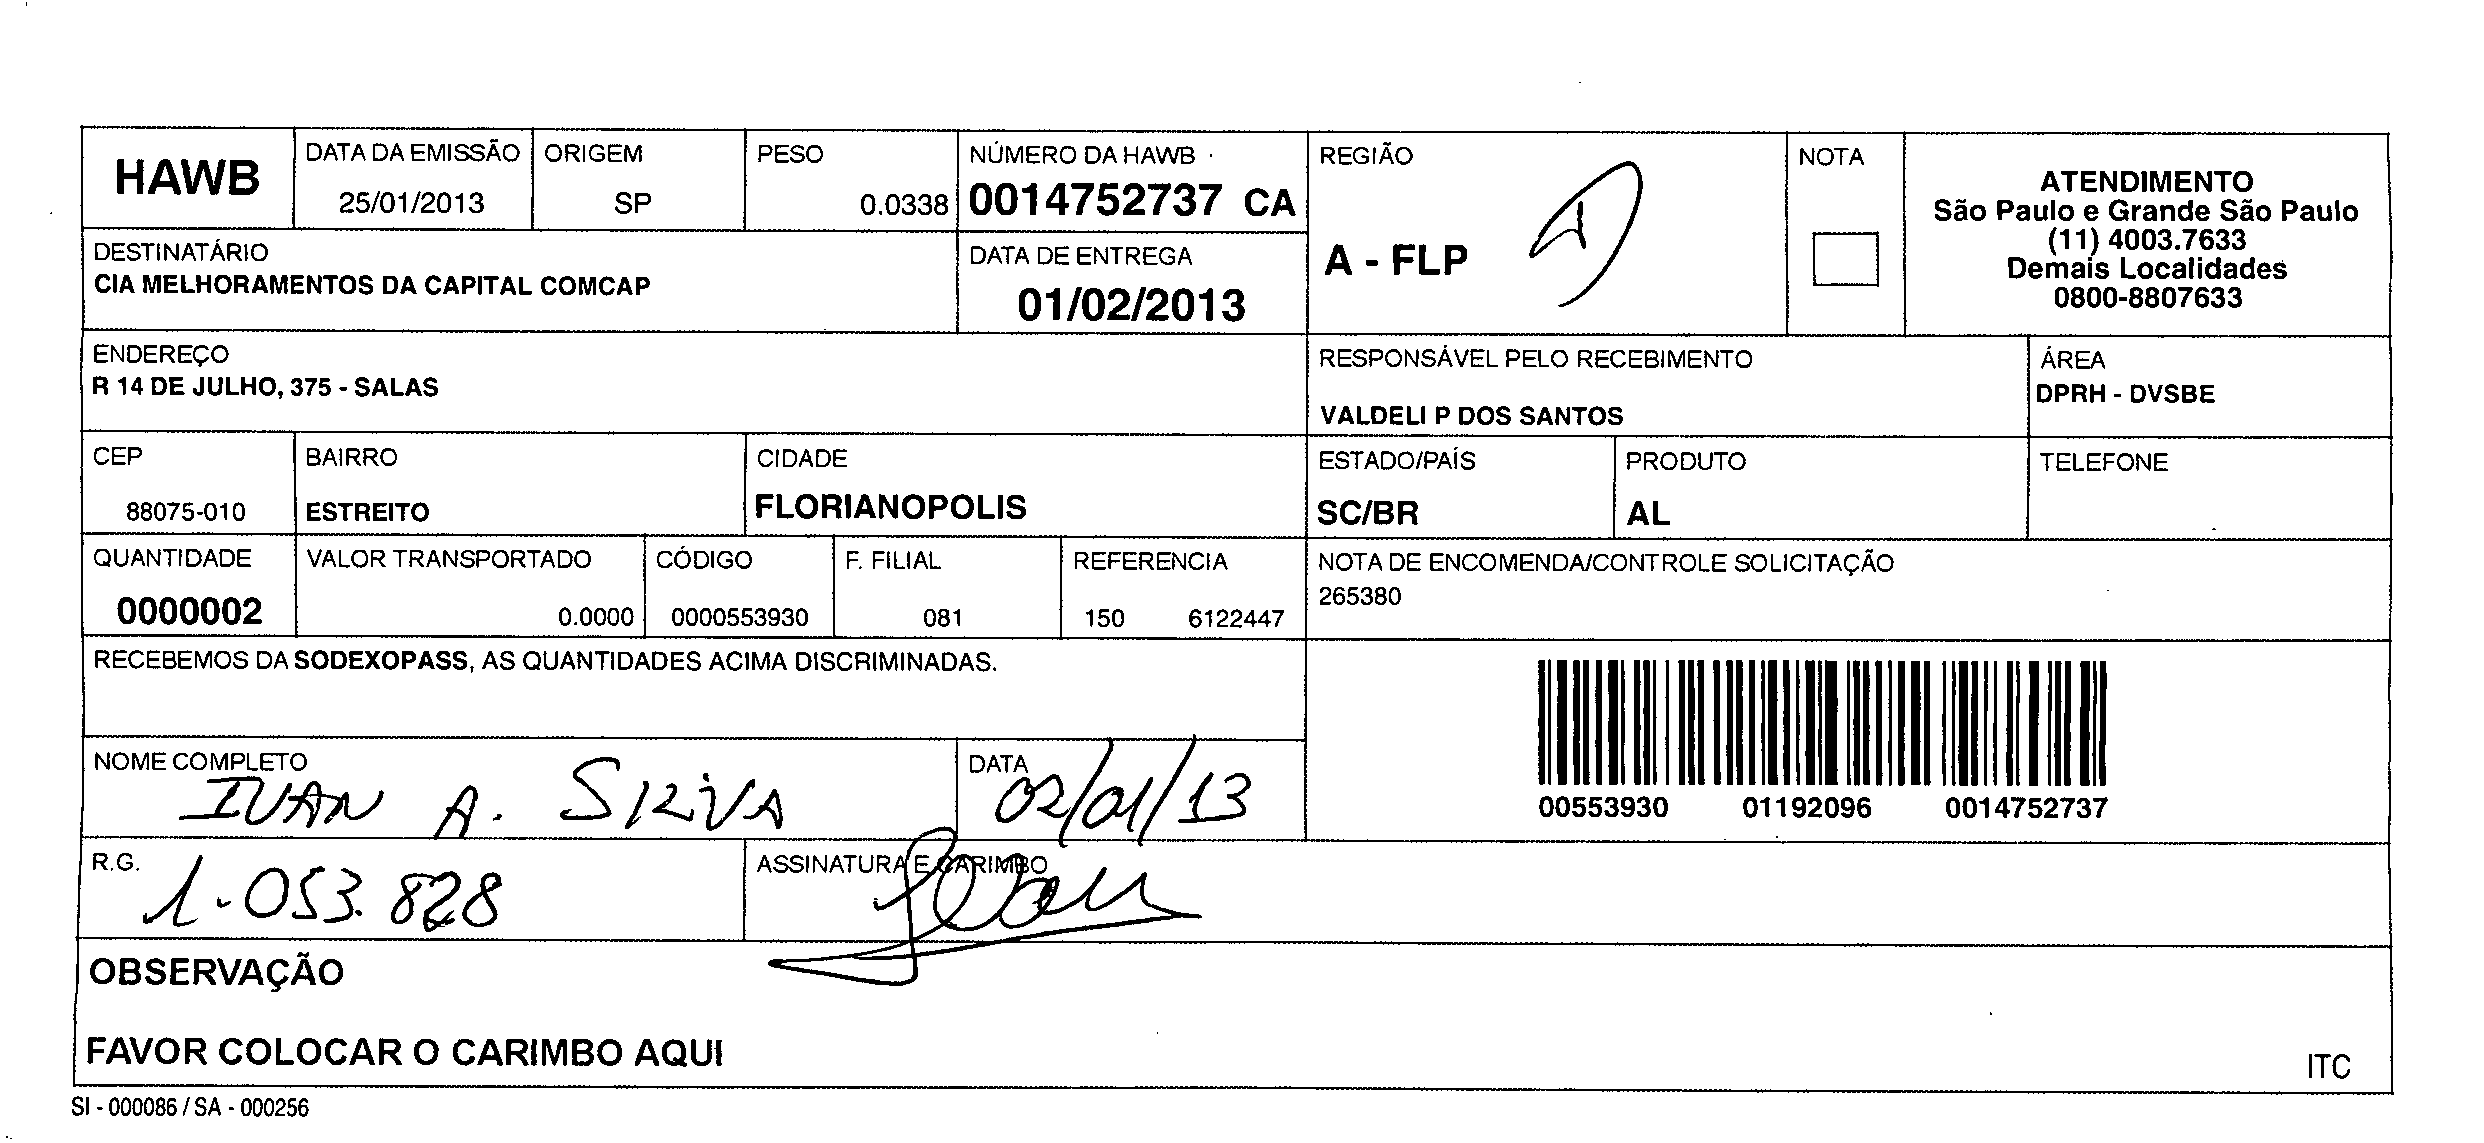 HAWB
DATA DA EMISSÃO
25/01/2013
ORIGEM
SP
PESO
0.0338
NÚMERO DA HAWB
0014752737 CA
REGIÃO
A - FLP
NOTA
ATENDIMENTO
São Paulo e Grande São Paulo
(11) 4003.7633
Demais Localidades
0800-8807633
DESTINATÁRIO
CIA MELHORAMENTOS DA CAPITAL COMCAP
DATA DE ENTREGA
01/02/2013
ENDEREÇO
R 14 DE JULHO, 375 - SALAS
RESPONSÁVEL PELO RECEBIMENTO
VALDELI P DOS SANTOS
ÁREA
DPRH - DVSBE
CEP
88075-010
BAIRRO
ESTREITO
CIDADE
FLORIANOPOLIS
ESTADO/PAÍS
SC/BR
PRODUTO
AL
TELEFONE
QUANTIDADE
0000002
VALOR TRANSPORTADO
0.0000
CÓDIGO
0000553930
F. FILIAL
081
REFERENCIA
150 6122447
NOTA DE ENCOMENDA/CONTROLE SOLICITAÇÃO
265380
RECEBEMOS DA SODEXOPASS, AS QUANTIDADES ACIMA DISCRIMINADAS.
00553930 01192096 0014752737
NOME COMPLETO
IVAN A. SILVA
DATA
02/01/13
R.G.
1.053.828
ASSINATURA E CARIMBO
OBSERVAÇÃO
FAVOR COLOCAR O CARIMBO AQUI
ITC
SI - 000086 / SA - 000256